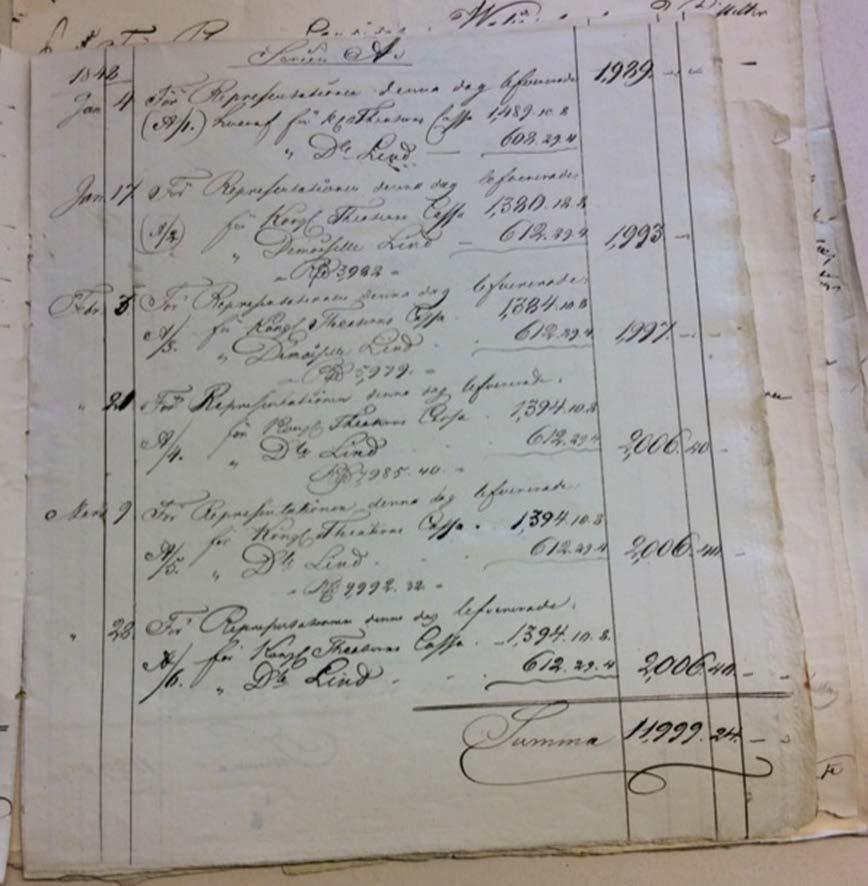 Serien A.
1848
Jan 4 För Representationen denna dag lefvererade 1,989. - -
(A/1.) hvaraf för Kgl Theaterns Cassa 1,489. 10. 8
" Dlle Lind — 608. 29. 4
Jan. 17. För Representationen denna dag lefvererade
(A/2) för Kongl Theaterns Cassa 1,380. 18. 8
" Demoiselle Lind — 612. 29. 4 1,993 -
Rd 3,982 -
Febr. 3. För Representationen denna dag lefvererade:
A/3. för Kongl Theaterns Cassa 1,384. 10. 8
" Demoiselle Lind 612. 29. 4 1,997. - -
Rd 5,979. -
" 21 För Representationen denna dag lefvererade:
A/4. för Kongl Theaterns Cassa 1,394. 10. 8
" Dlle Lind 612. 29. 4 2,006. 40 -
Rd 7,985. 40. -
Mars 9 För Representationen denna dag lefvererade:
A/5. för Kongl Theaterns Cassa. 1,394. 10. 8
" Dlle Lind 612. 29. 4 2,006. 40. -
Rd 9,992. 32. -
" 28. För Representationen denna dag lefvererade:
A/6. för Kongl Theaterns Cassa. 1,394. 10. 8.
" Dlle Lind - 612. 29. 4 2,006. 40. - -
Summa 11,999. 24. - -